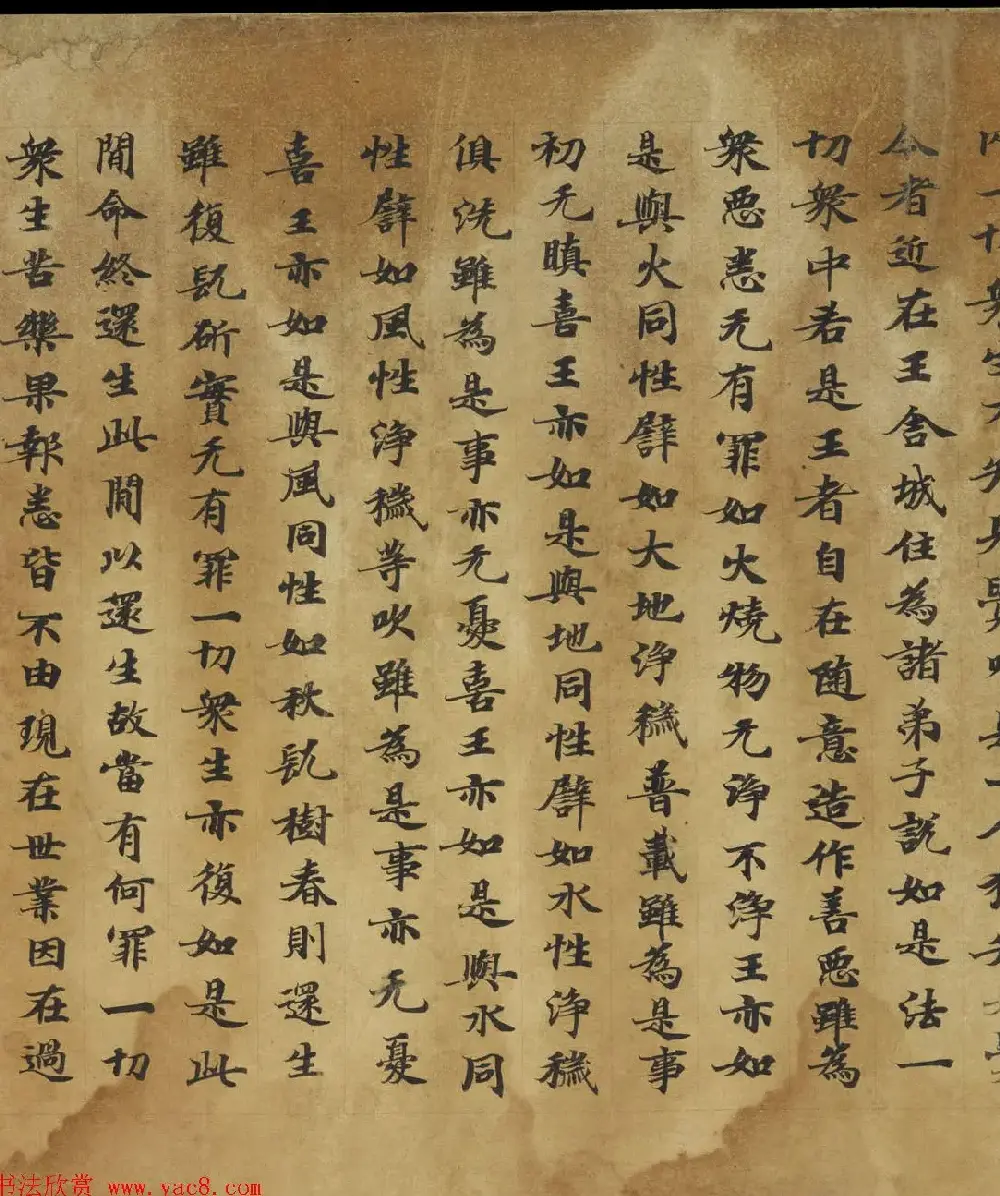 今者近在王舍城住為諸弟子說如是法一
切衆中若是王者自在随意造作善惡雖為
衆惡悉无有罪如火燒物无淨不淨王亦如
是與火同性譬如大地淨穢普載雖為是事
初无瞋喜王亦如是與地同性譬如水性淨穢
俱洗雖為是事亦无憂喜王亦如是與水同
性譬如風性淨穢等吹雖為是事亦无憂
喜王亦如是與風同性如秋髡樹春則還生
雖復髡斫實无有罪一切衆生亦復如是此
間命終還生此間以還生故當有何罪一切
衆生苦樂果報悉皆不由現在世業因在過
书法欣赏 www.yac8.com